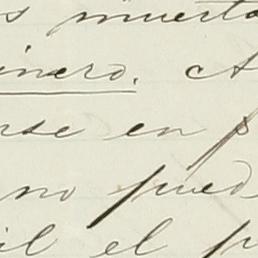 s muerto
inero. A
rse en p
no pued
il el p